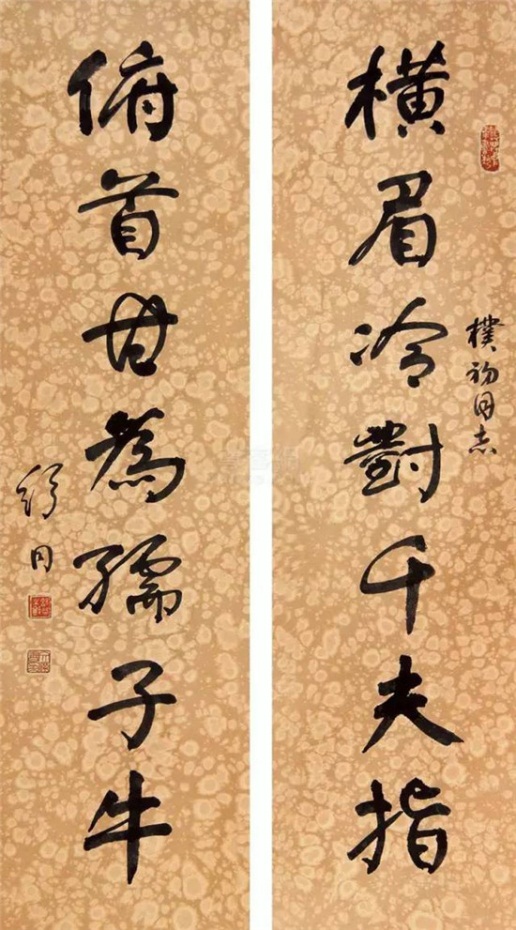 横眉冷對千夫指
樸初同志
俯首甘為孺子牛
舒同